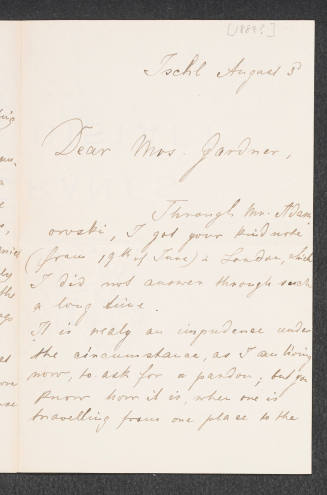 [1889?]
Ischl August 3
Dear Mrs. Gardner,
Through Mr. Adam
owski, I got your kind note
(from 19th of June) in London, which
I did not answer through such
a long time.
It is realy an impudence under
the circumstance, as I am living
now, to ask for a pardon; but you
know how it is, when one is
travelling from one place to the